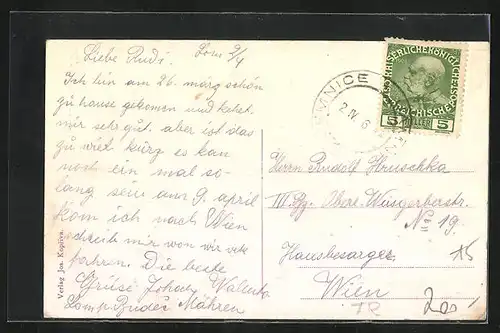 Liebe Rudi. Lom 2/4
Ich bin am 26. März schön
zu hause gekomen und
mir sehr gut. aber ist das
zu viel kurz es kan
noch ein mal so-
lang sein am 9. april
kom ich nach Wien
schreib mir won wir
fahren. Die beste
Grüse Johan
Mähren
Verlag Jos. Kopřiva.
KAISERLICHE KÖNIGLICHE ÖSTERREICHISCHE POST
5 HELLER 5
MNICE
2 IV
Herrn Rudolf Hruschka
III. Bz. Obere
No 19.
Hausbesorger
Wien